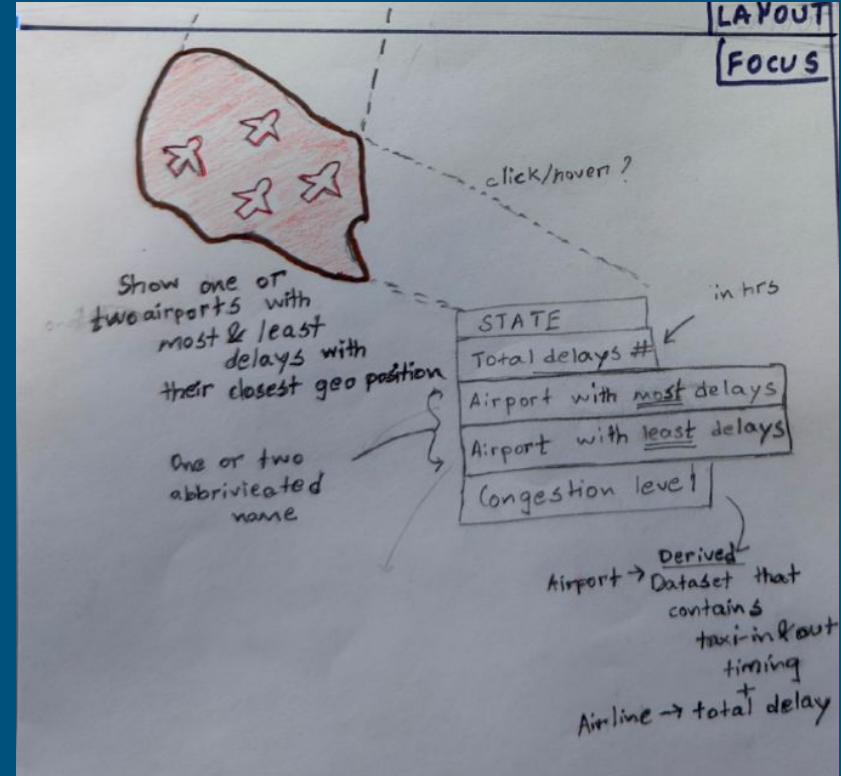 LAYOUT
FOCUS
click/hover?
Show one or
two airports with
most & least
delays with
their closest geo position
in hrs
STATE
Total delays #
Airport with most delays
Airport with least delays
Congestion level
One or two
abbrivieated
name
Derived
Airport → Dataset that
contains
taxi-in & out
timing
+
Airline → total delay